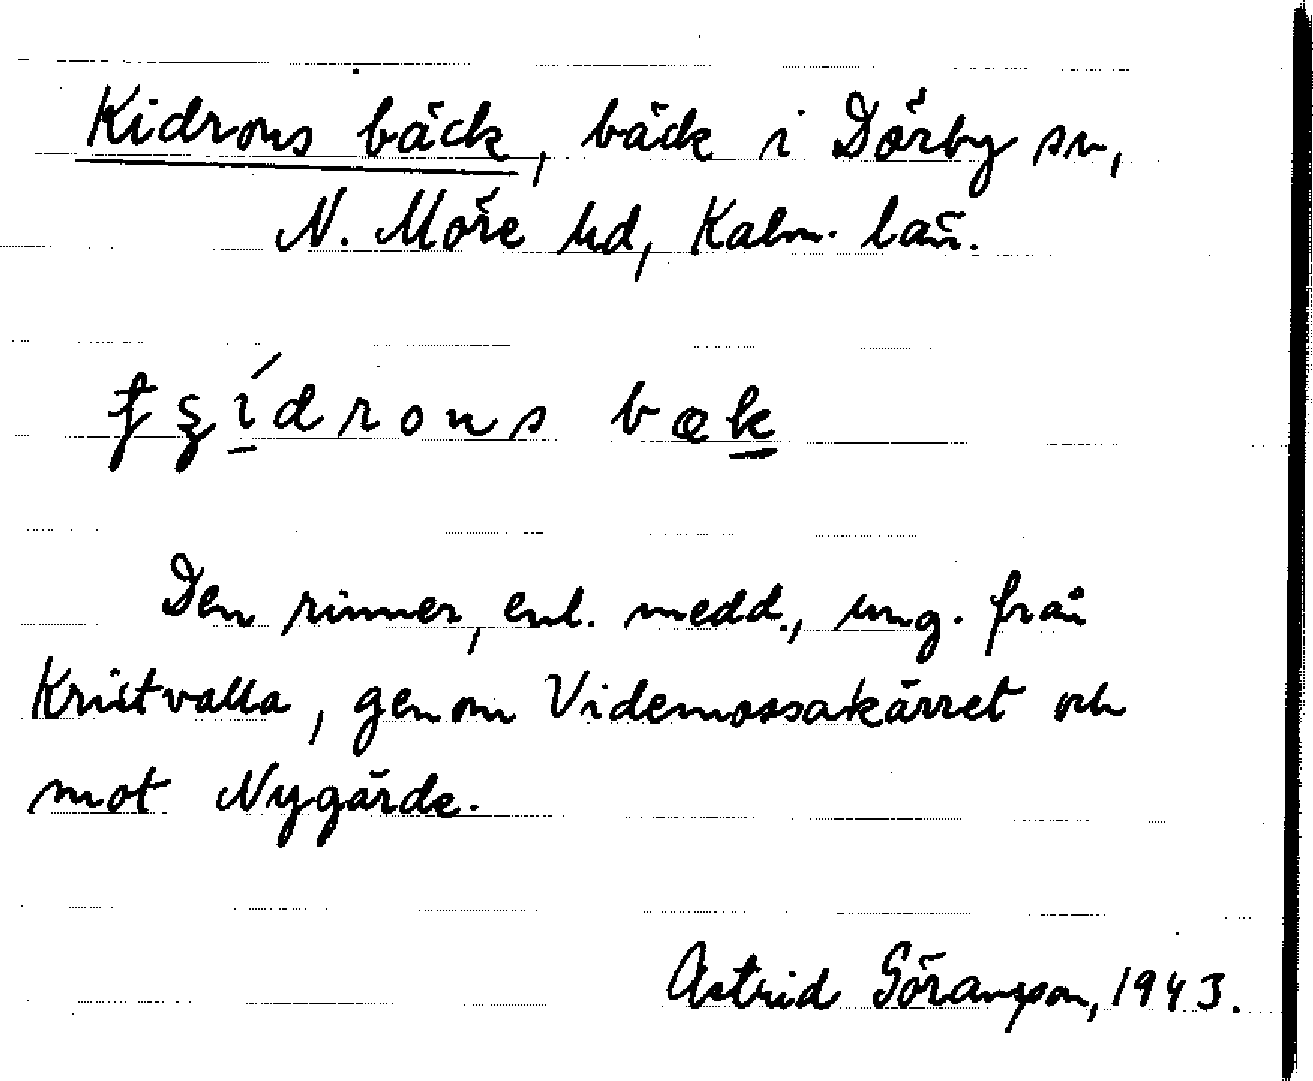 Kidrons bäck, bäck i Dörby sn,
N. Möre hd, Kalm. län.
drons bæk
Den rinner, enl. medd., ung. från
Kristvalla, genom Videmossakärret och
mot Nygärde.
Astrid Göransson, 1943.